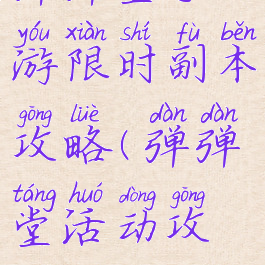 yóu xiàn shí fù běn
游限时副本
gōng lüè dàn dàn
攻略(弹弹
táng huó dòng gōng
堂活动攻